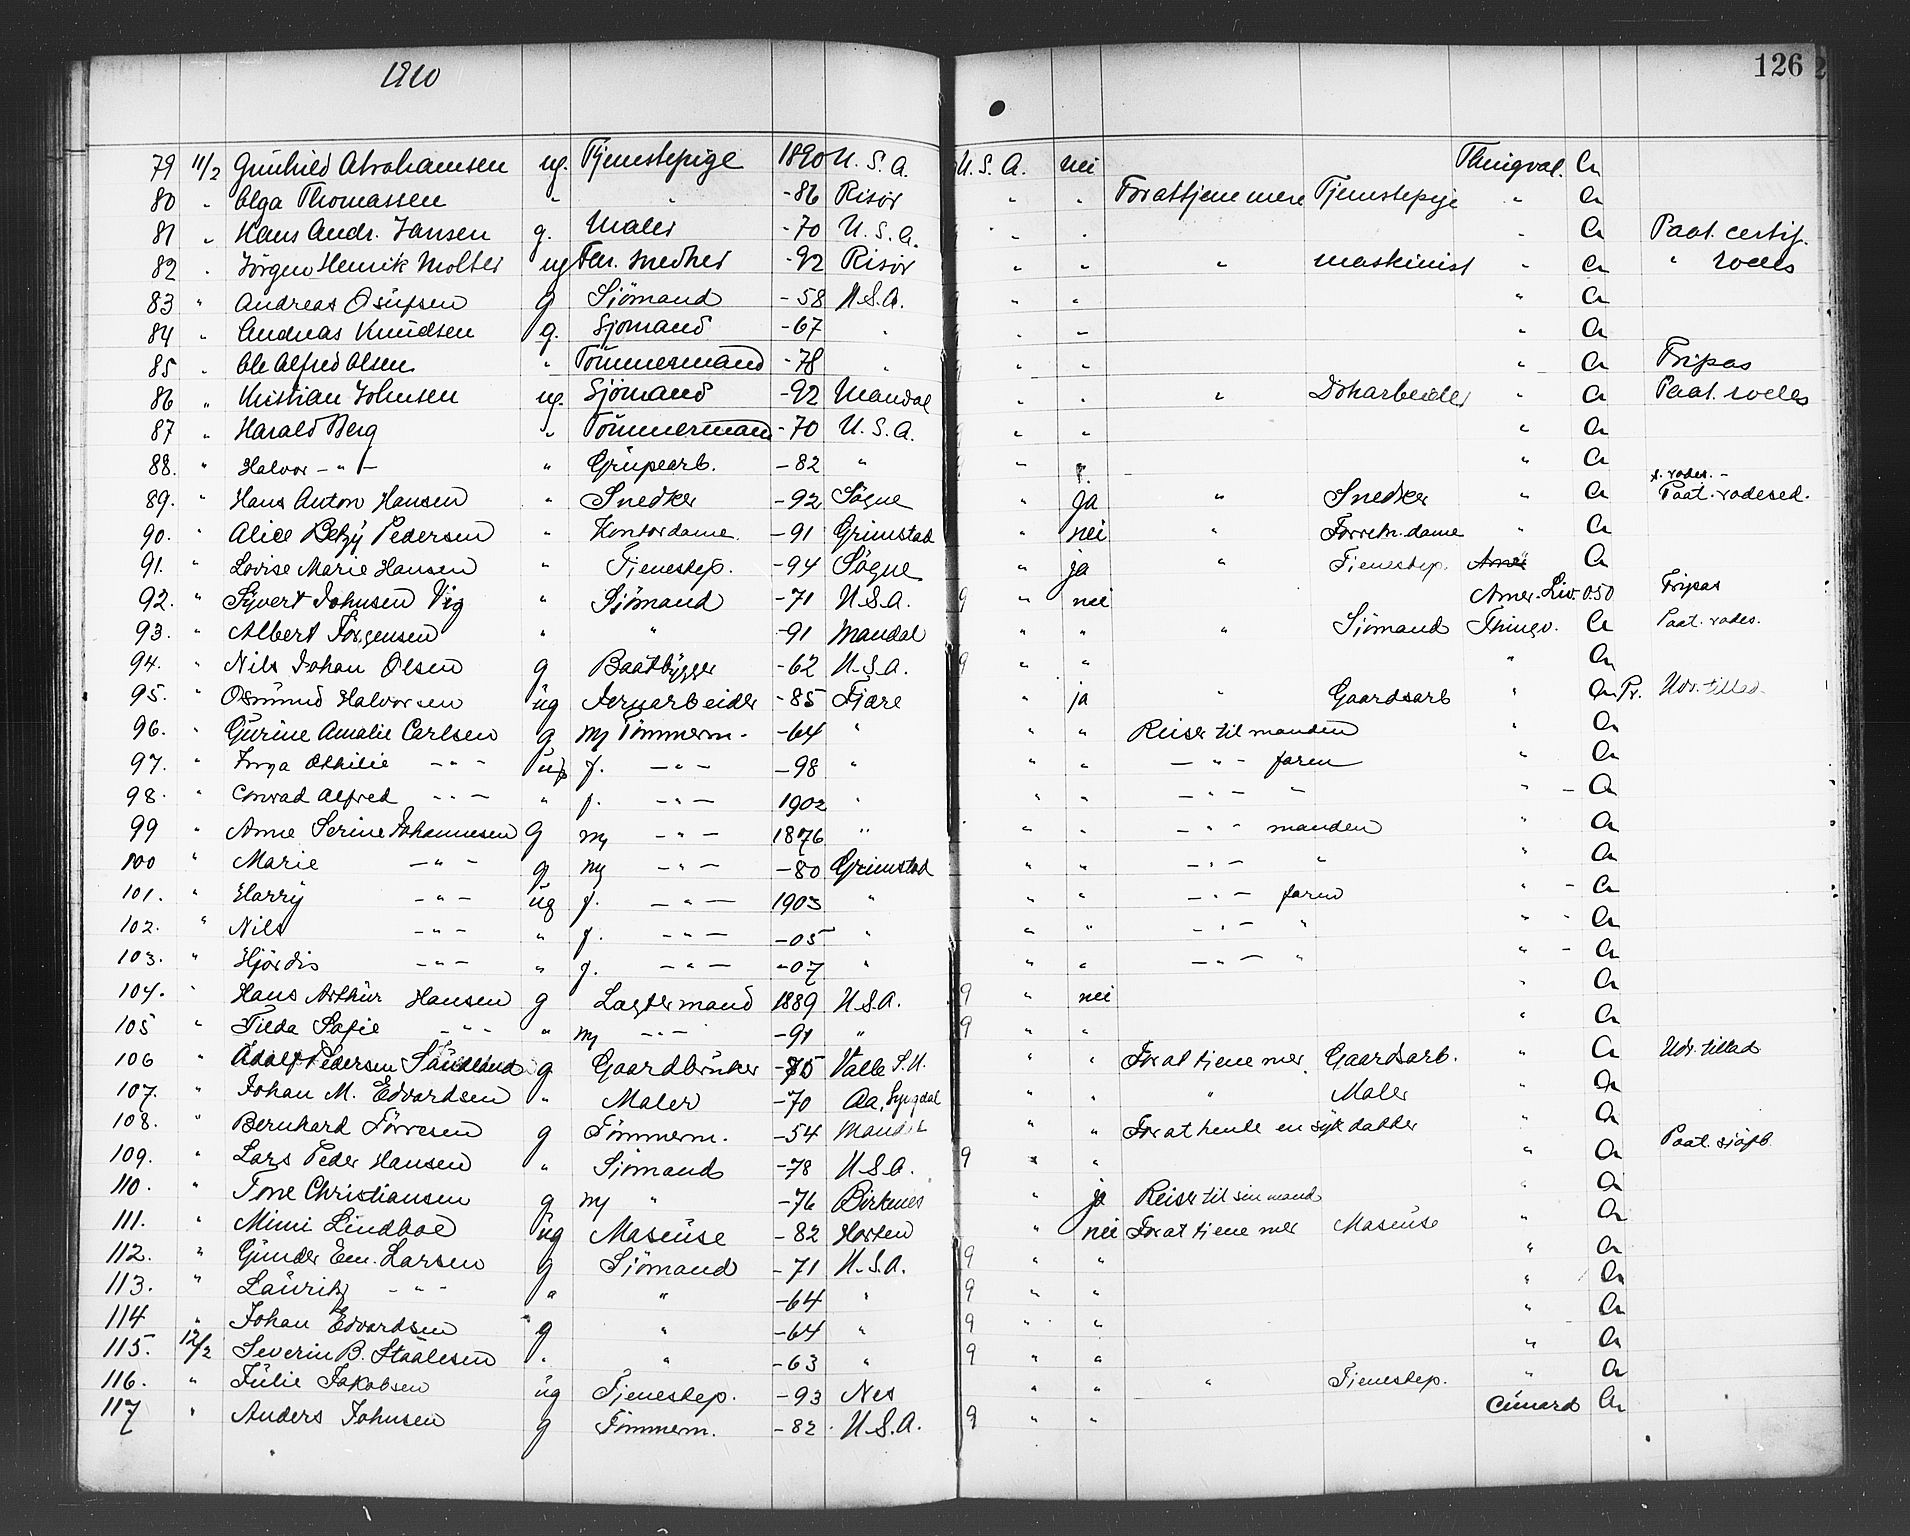 1910
126
79 11/2 Gunhild Abrahamsen ug. Tjenestepige 1890 U.S.A. U.S.A. nei Thingval. Cr
80 " Olga Thomassen " " -86 Risör " " For at tjene mere Tjenestepige " Cr
81 " Hans Andr. Jansen g. Maler -70 U.S.A. " " " Cr Paat. certif.
82 " Jörgen Henrik Molter ug Fhv. snedker -92 Risör " " " maskinist " Cr " rodes
83 " Andreas Osufsen g Sjömand -58 U.S.A. 9 " " " Cr
84 " Andreas Knudsen g. Sjömand -67 " " " " Cr
85 " Ole Alfred Olsen " Tömmermand -78 " " " " Cr Fripas
86 " Kristian Johnsen ug. Sjömand -92 Mandal " " " Dokarbeider " Cr Paat. rodes
87 " Harald Berg " Tömmermand -70 U.S.A. 9 " " " Cr
88. " Halvor -"- " Grupearb. -82 " " ". " Cr
89. " Hans Anton Hansen " Snedker -92 Søgne " Ja " Snedker " Cr s. rodes. - Paat. rodesed.
90. " Alice Betzy Pedersen " Kontordame -91 Grimstad " nei " Forretn.dame " Cr
91. " Lovise Marie Hansen " Tjenestep. -94 Søgne " ja " Tjenestep. Amr. Cr
92. " Syvert Johnsen Vig " Sjömand -71 U.S.A. 9 " nei Amer. Liv. 050 Fripas
93. " Albert Jörgensen " " -91 Mandal " " " Sjömand Thingv. Cr Paat. rodes.
94. " Nils Johan Olsen g Baatbygger -62 U.S.A. 9 " " " Cr
95. " Osmund Halvorsen ug Jernarbeider -85 Fjære " ja " Gaardsarb " Cr Pr. Udv. tillad.
96. " Gurine Amalie Carlsen g m/ Tömmerm. -64 " " " Reiser til manden " Cr
97. " Inga Othilie -"- ug f. -"- -98 " " " -"- faren " Cr
98. " Conrad Alfred -"- " f. -"- 1902 " " " -"- " " - Cr
99 " Anne Serine Johannesen g m/ -"- 1876 " " " -"- manden " Cr
100 " Marie -"- g m/ -"- -80 Grimstad " " -"- " " Cr
101. " Harry -"- ug f. -"- 1903 " " " -"- faren " - Cr
102. " Nils -"- " f. -"- -05 " " " -"- " " - Cr
103. " Hjördis -"- " f. -"- -07 " " " -"- " " - Cr
104. " Hans Arthur Hansen g Lagtermand 1889 U.S.A. 9 " nei " Cr
105 " Tilda Sofie -"- " m/ -"- -91 " 9 " " " Cr
106 " Adolf Pedersen Sandland g Gaardbruker -75 Valle S.U. " " For at tjene mer. Gaardsarb. " Cr Udv. tillad
107. " Johan M. Edvardsen " Maler -70 Aa, Lyngdal " " " Maler " Cr
108. " Bernhard Törresen g Tömmerm. -54 Mandal " " For at hente en syk datter " Cr
109. " Lars Peder Hansen " Sjömand -78 U.S.A. 9 " " " Cr Paat. sjöfb.
110. " Tone Christiansen g m/ " -76 Birkenes " ja Reiser til sin mand " Cr
111. " Mimi Lindboe ug Maseuse -82 Horten " nei For at tjene mer Maseuse " Cr
112. " Gunder Em. Larsen g Sjömand -71 U.S.A. 9 " " " Cr
113. " Lauritz -"- " " -64 " 9 " " " Cr
114 " Johan Edvardsen g " -64 " 9 " " " Cr
115. 12/2 Severin B. Staalesen " " -63 " 9 " " " Cr
116. " Julie Jakobsen ug Tjenestep. -93 Nes " " " Tjenestep. " Cr
117 " Anders Johnsen g Tömmerm. -82 U.S.A. 9 " " Cunard Cr